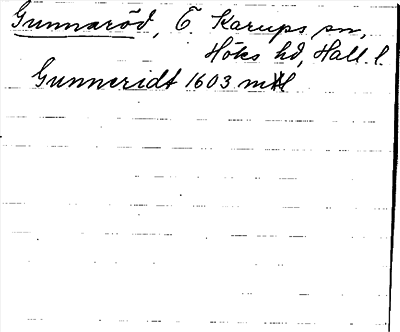 Gunnaröd, Ö. Karups sn,
Höks hd, Hall. l.
Gunneridt 1603